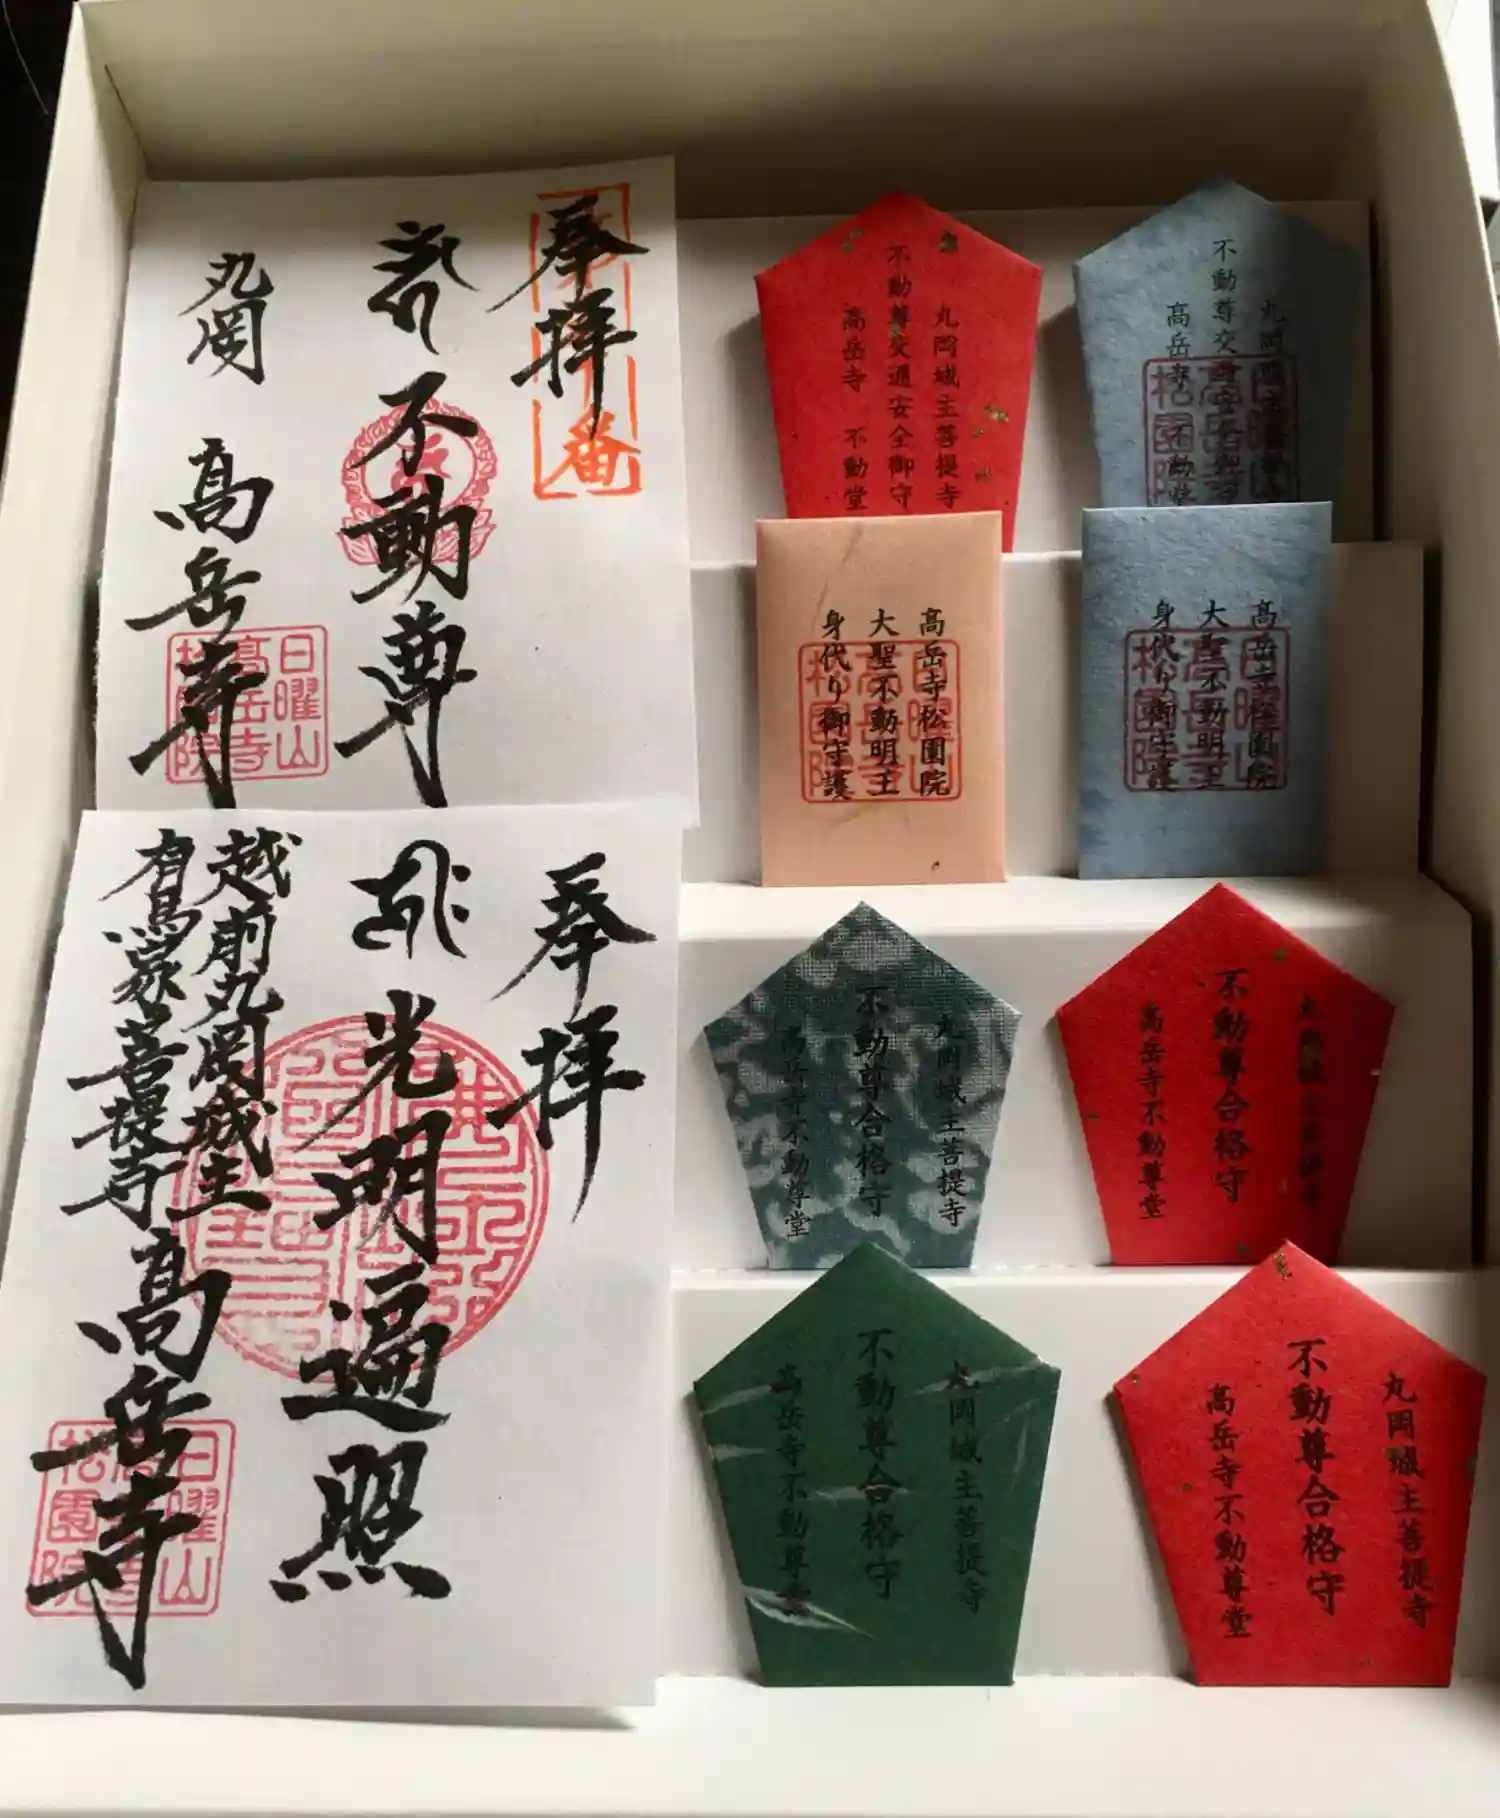 奉拝
不動尊
丸岡
高岳寺
日曜山
高岳寺
松園院
奉拝
光明遍照
越前丸岡城主
有馬家菩提寺
高岳寺
日曜山
高岳寺
松園院
丸岡城主菩提寺
不動尊交通安全御守
高岳寺 不動堂
丸岡
不動尊交
高岳寺 不動堂
高岳寺松園院
大聖不動明王
身代り御守護
高岳寺松園院
大聖不動明王
身代り御守護
丸岡城主菩提寺
不動尊合格守
高岳寺不動尊堂
丸岡城主菩提寺
不動尊合格守
高岳寺不動尊堂
丸岡城主菩提寺
不動尊合格守
高岳寺不動尊堂
丸岡城主菩提寺
不動尊合格守
高岳寺不動尊堂